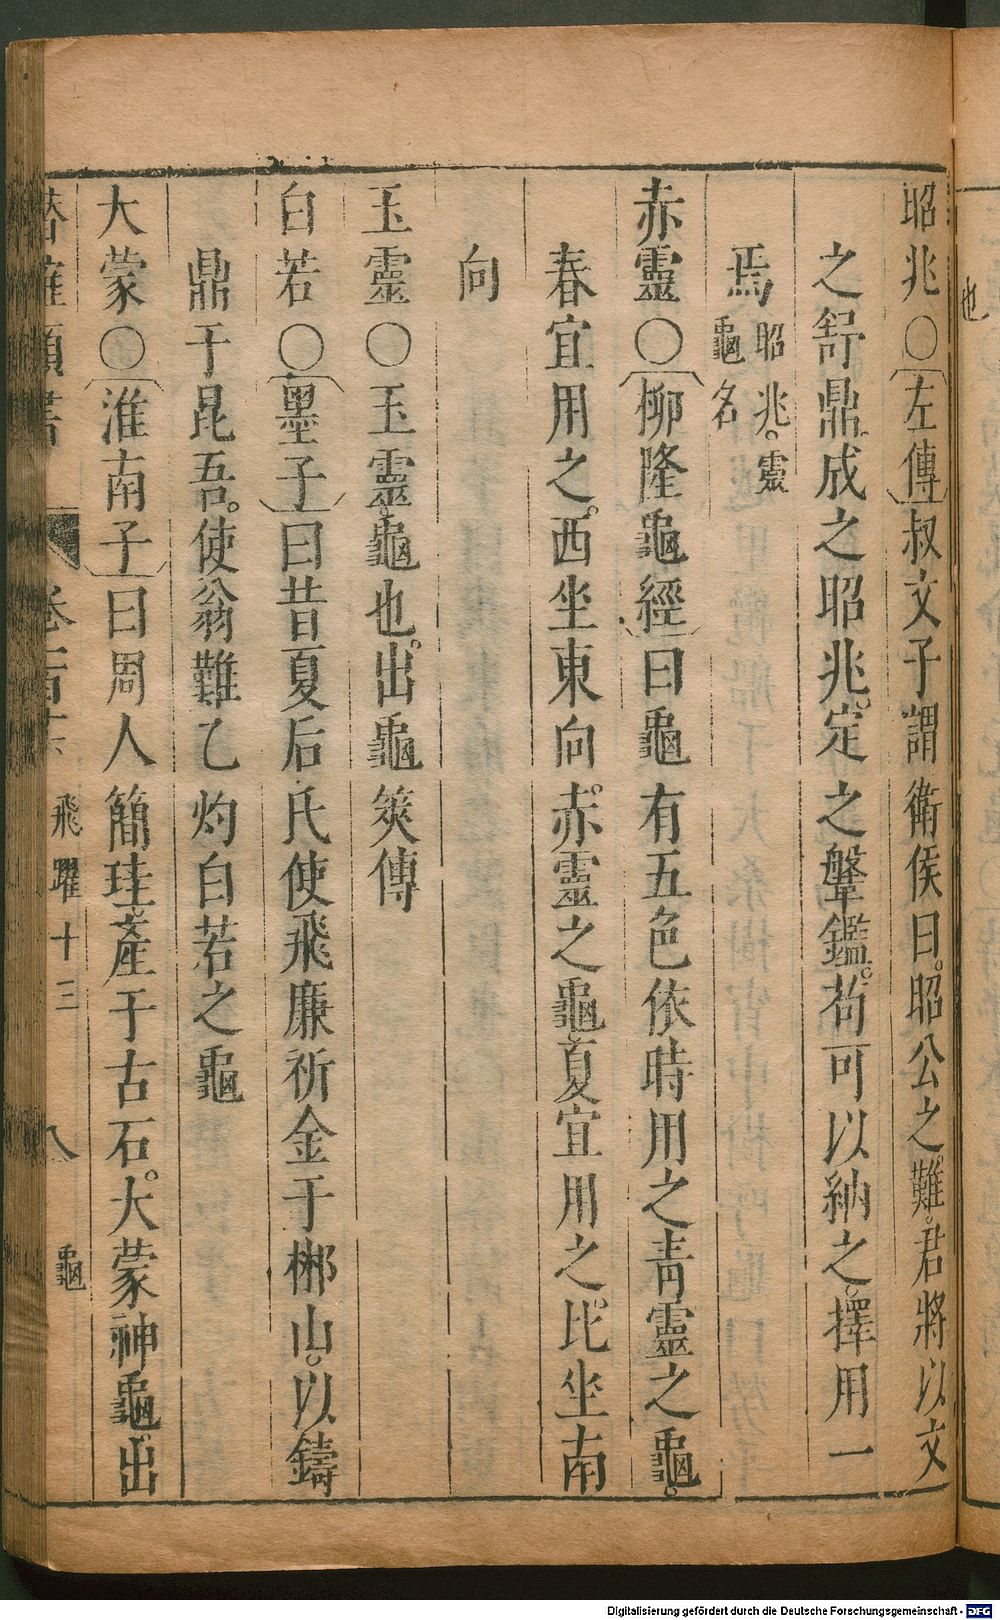 昭兆○左傳叔文子謂衛侯曰。昭公之難。君將以文
之舒鼎。成之昭兆。定之鞶鑑。苟可以納之。擇用一
焉昭兆。靈
龜名
赤靈○柳隆龜經曰龜有五色依時用之青靈之龜。
春宜用之。西坐東向。赤靈之龜。夏宜用之。比坐南
向
玉靈○玉靈。龜也。出龜筴傳
白若○墨子曰昔夏后氏使飛廉祈金于郴山。以鑄
鼎于昆吾。使翁難乙灼白若之龜
大蒙○淮南子曰周人簡珪。產于古石。大蒙神龜。出
類書 飛躍十三 八 龜
也
Digitalisierung gefördert durch die Deutsche Forschungsgemeinschaft - DFG